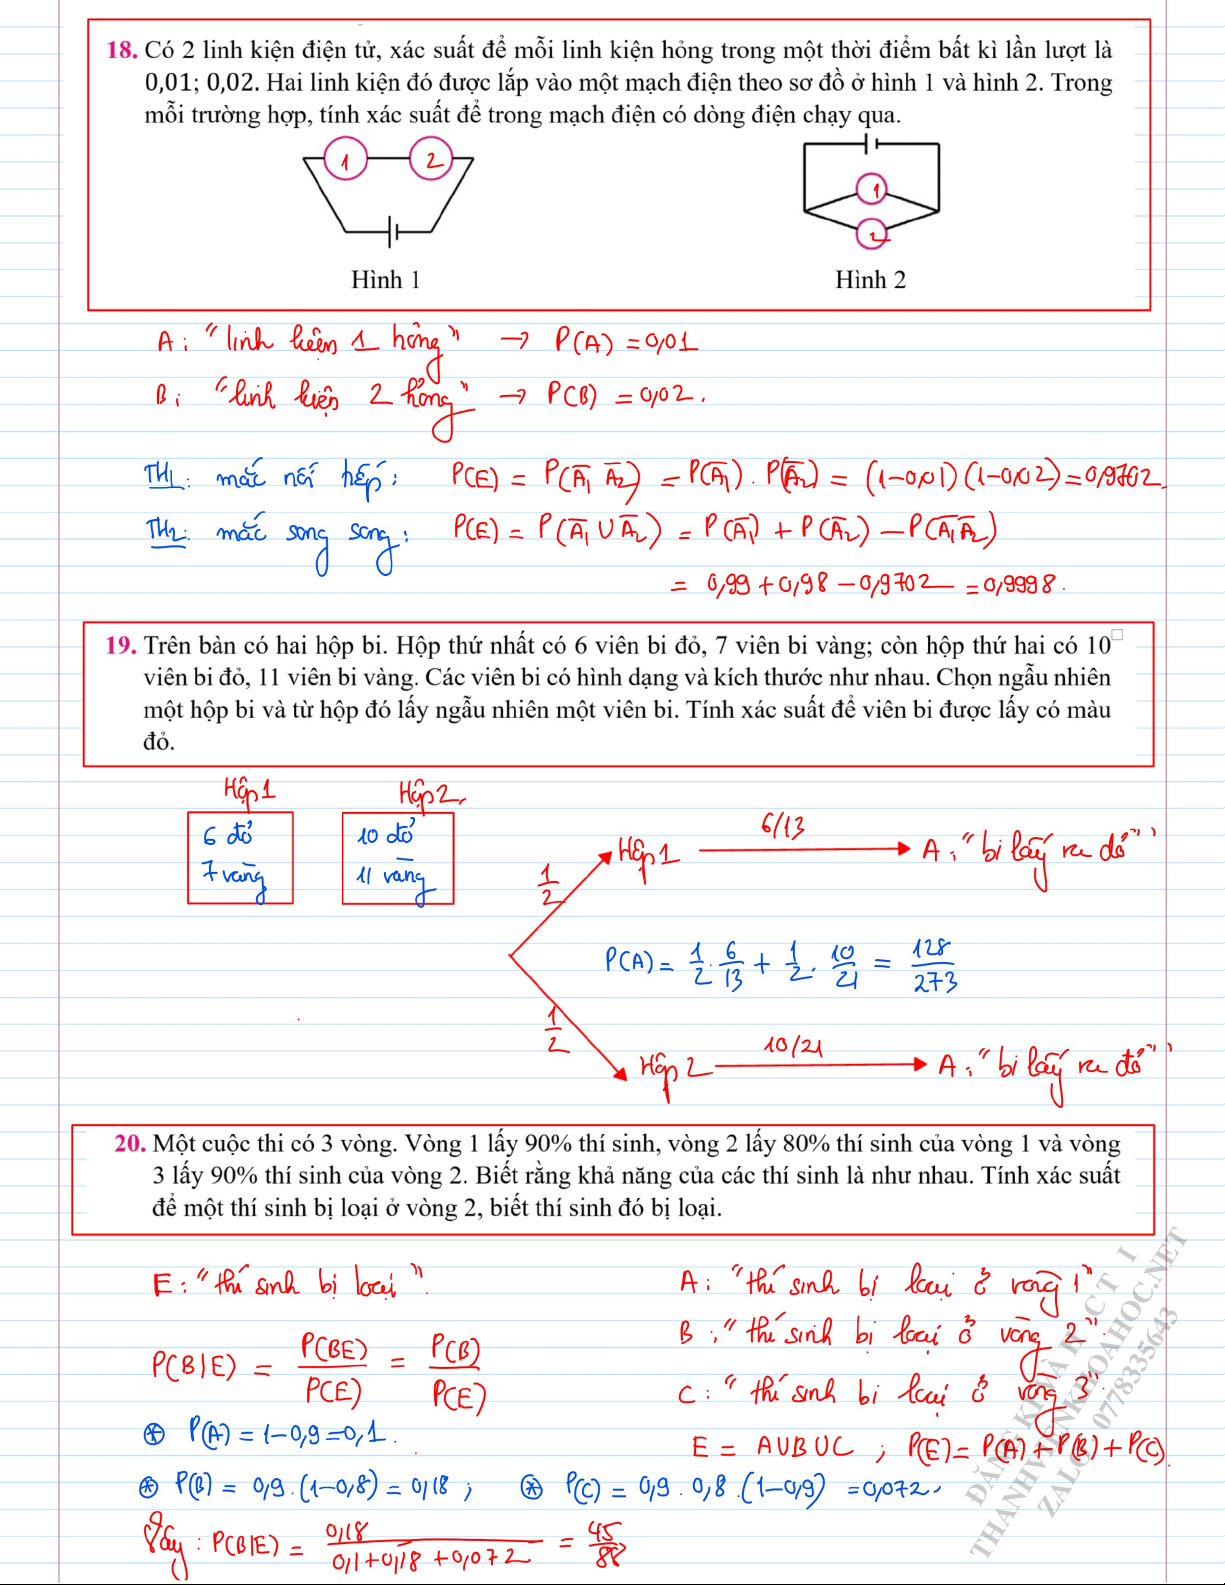 18. Có 2 linh kiện điện tử, xác suất để mỗi linh kiện hỏng trong một thời điểm bất kì lần lượt là
0,01; 0,02. Hai linh kiện đó được lắp vào một mạch điện theo sơ đồ ở hình 1 và hình 2. Trong
mỗi trường hợp, tính xác suất để trong mạch điện có dòng điện chạy qua.
1 2
1
2
Hình 1 Hình 2
A: "linh kiện 1 hỏng" → P(A) = 0,01
B: "linh kiện 2 hỏng" → P(B) = 0,02.
TH1: mắc nối tiếp: P(E) = P(A̅₁ A̅₂) = P(A̅₁) . P(A̅₂) = (1-0,01)(1-0,02) = 0,9702.
TH2: mắc song song: P(E) = P(A̅₁ ∪ A̅₂) = P(A̅₁) + P(A̅₂) - P(A̅₁A̅₂)
= 0,99 + 0,98 - 0,9702 = 0,9998.
19. Trên bàn có hai hộp bi. Hộp thứ nhất có 6 viên bi đỏ, 7 viên bi vàng; còn hộp thứ hai có 10
viên bi đỏ, 11 viên bi vàng. Các viên bi có hình dạng và kích thước như nhau. Chọn ngẫu nhiên
một hộp bi và từ hộp đó lấy ngẫu nhiên một viên bi. Tính xác suất để viên bi được lấy có màu
đỏ.
Hộp 1 Hộp 2
6 đỏ 10 đỏ
7 vàng 11 vàng
1/2 Hộp 1 6/13 A: "bi lấy ra đỏ"
P(A) = 1/2 . 6/13 + 1/2 . 10/21 = 128/273
1/2 Hộp 2 10/21 A: "bi lấy ra đỏ"
20. Một cuộc thi có 3 vòng. Vòng 1 lấy 90% thí sinh, vòng 2 lấy 80% thí sinh của vòng 1 và vòng
3 lấy 90% thí sinh của vòng 2. Biết rằng khả năng của các thí sinh là như nhau. Tính xác suất
để một thí sinh bị loại ở vòng 2, biết thí sinh đó bị loại.
E: "thí sinh bị loại". A: "thí sinh bị loại ở vòng 1"
B: "thí sinh bị loại ở vòng 2".
P(B|E) = P(BE)/P(E) = P(B)/P(E)
C: "thí sinh bị loại ở vòng 3".
⊛ P(A) = 1-0,9 = 0,1.
E = A∪B∪C ; P(E) = P(A) + P(B) + P(C)
⊛ P(B) = 0,9.(1-0,8) = 0,18 ; ⊛ P(C) = 0,9 . 0,8 . (1-0,9) = 0,072.
Vậy: P(B|E) = 0,18/(0,1+0,18+0,072) = 45/88
THANHVIENKHOAHOC.NET
ZALO 0778335643